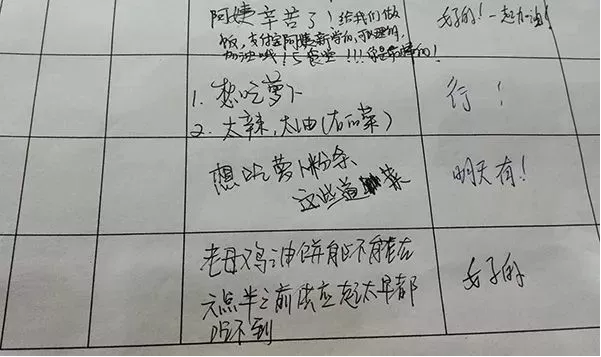 阿姨辛苦了!给我们做
饭,支付宝阿姨新学的,可以理的,
加油哦!5食堂!!!你是最棒的!
好的!一起加油!
1. 想吃萝卜
2. 太辣,太油(右口菜)
行!
想吃萝卜粉条
这些道 菜
明天有!
老母鸡油饼能不能在
六点半之前供应起太早都
吃不到
好的